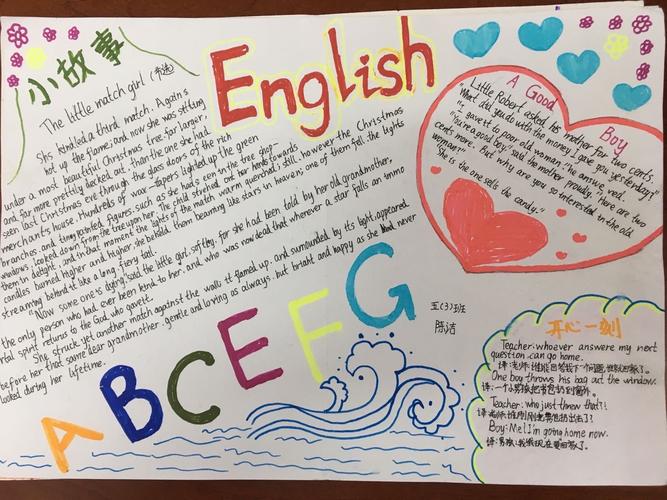 小故事
English
The little match girl (节选)
She kindled a third match. Again
shot up the flame; and now she was sitting
under a most beautiful Christmas tree far larger,
and far more prettily decked out than the one she had
seen last Christmas eve through the glass doors of the rich
merchant's house. Hundreds of wax-tapers lighted up the green
branches, and tiny painted figures, such as she had seen in the shop-
windows, looked down from the tree upon her. The child stretched out her hands towards
them in delight, and in that moment the lights of the match warm quenched; still, however, the Christmas
candles burned higher and higher she beheld them beaming like stars in heaven; one of them fell, the lights
streaming behind it like a long, fiery tail.
"Now some one is dying" said the little girl, softly, for she had been told by her old grandmother,
the only person who had ever been kind to her, and who was now dead that whenever a star falls an immo
rtal spirit returns to the God who gave it.
She struck yet another match against the wall; it flamed up, and surrounded by its light, appeared
before her that same dear grandmother, gentle and loving as always, but bright and happy as she had never
looked during her lifetime.
A Good
Boy
Little Robert asked his mother for two cents.
"What did you do with the money I gave you yesterday?"
"I gave it to poor old woman," he answered.
"You're a good boy," said the mother proudly. "Here are two
cents more. But why are you so interested in the old
woman?"
"She is the one sells the candy."
五(3)班
陈洁
A B C E F G
开心一刻
Teacher: whoever answers my next
question, can go home.
译:老师:谁能回答我下个问题,谁就回家了。
One boy throws his bag out the window.
译:一个男孩把书包扔到窗外。
Teacher: who just threw that?!
译:老师:谁刚刚把书包扔出去了?
Boy: Me! I'm going home now.
译:男孩:我,我现在要回家了。